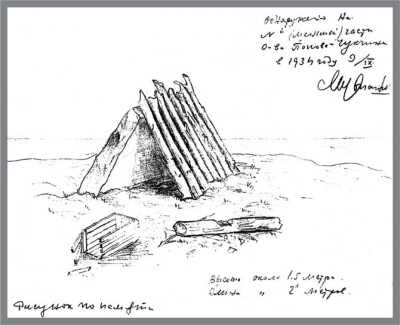 обнаружено на
(меньшей) части
О-ва Попово-Чукчина
в 1934 году 9/IX
Высота около 1.5 метра.
Длина " 2х метров.
Рисунок по памяти